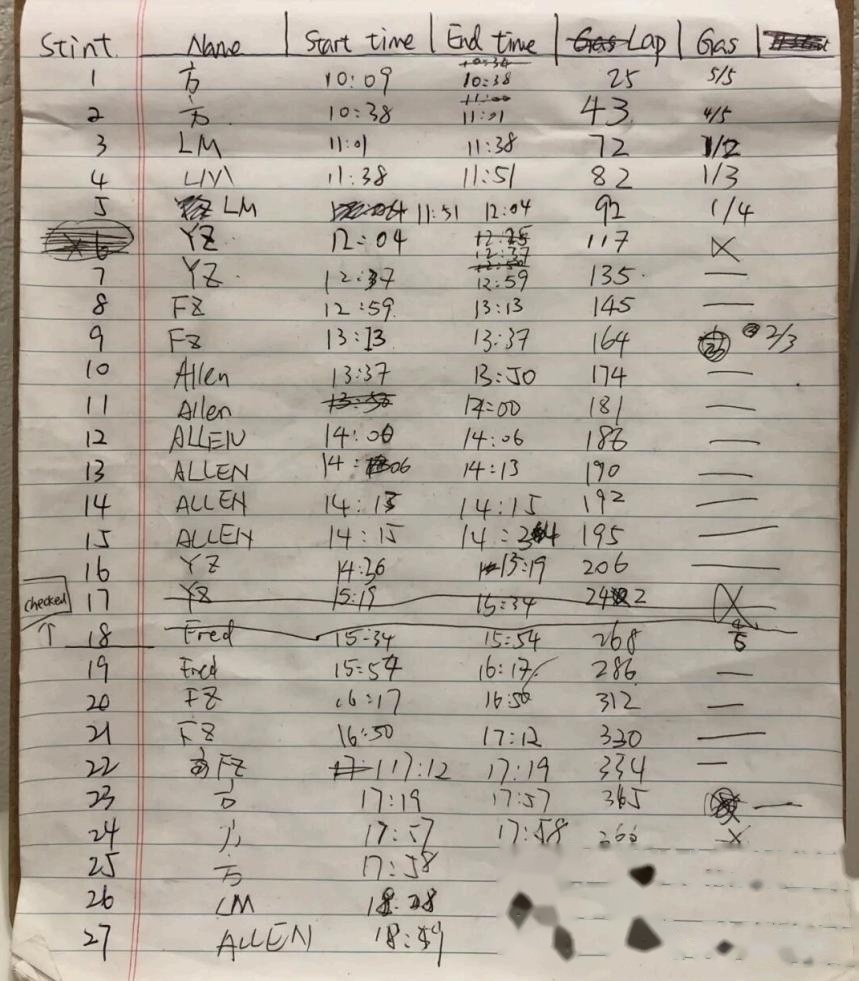 Stint Name Start time End time Lap Gas
1 方 10:09 10:38 25 5/5
2 方 10:38 11:01 43 4/5
3 LM 11:01 11:38 72 1/2
4 LM 11:38 11:51 82 1/3
5 LM 11:51 12:04 92 1/4
6 YZ 12:04 12:37 117 X
7 YZ 12:37 12:59 135 —
8 FZ 12:59 13:13 145 —
9 FZ 13:13 13:37 164 2/3
10 Allen 13:37 13:50 174 —
11 Allen 14:00 181 —
12 ALLEN 14:00 14:06 186 —
13 ALLEN 14:06 14:13 190 —
14 ALLEN 14:13 14:15 192 —
15 ALLEN 14:15 195 —
16 YZ 14:36 15:19 206 —
checked 17 YZ 15:19 15:34 242 X
↑ 18 Fred 15:34 15:54 268 4/5
19 Fred 15:54 16:17 286 —
20 FZ 16:17 16:50 312 —
21 FZ 16:50 17:12 330 —
22 FZ 17:12 17:19 334 —
23 方 17:19 17:57 365 —
24 方 17:57 17:58 X
25 方 17:58
26 LM
27 ALLEN